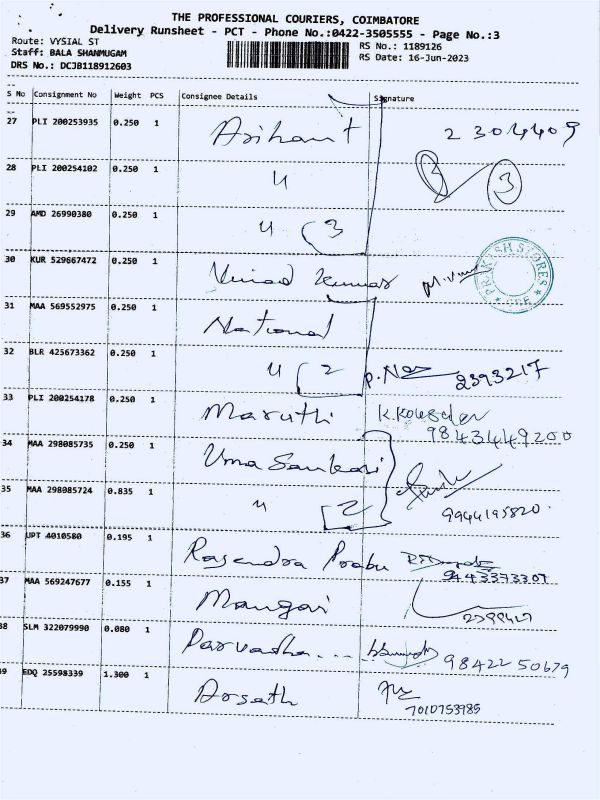 THE PROFESSIONAL COURIERS, COIMBATORE
Delivery Runsheet - PCT - Phone No.:0422-3505555 - Page No.:3
Route: VYSIAL ST
RS No.: 1189126
Staff: BALA SHANMUGAM
RS Date: 16-Jun-2023
DRS No.: DCJB118912603
S No Consignment No Weight PCS Consignee Details Signature
27 PLI 200253935 0.250 1 Arihant 2304409
28 PLI 200254102 0.250 1 " 3
29 AMD 26990380 0.250 1 " 3
30 KUR 529667472 0.250 1 Vinod Kumar
PRAKASH STORES
CBE
31 MAA 569552975 0.250 1 National
32 BLR 425673362 0.250 1 " 2 2393217
33 PLI 200254178 0.250 1 Maruthi
9843449200
34 MAA 298085735 0.250 1 Uma Sankari
35 MAA 298085724 0.835 1 " 2 9944195820
36 UPT 4010580 0.195 1 Rajendra Prabu
9443373307
37 MAA 569247677 0.155 1 Mangai
38 SLM 322079990 0.080 1 9842250679
39 EDQ 25598339 1.300 1 Arsath
7010753985